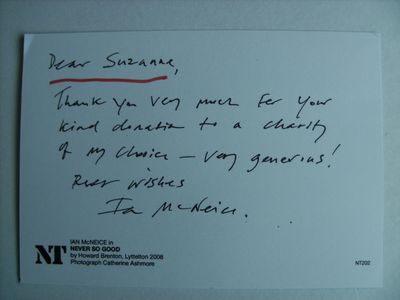 Dear Suzanne,
Thank you very much for your
kind donation to a charity
of my choice – very generous!
Best wishes
Ian McNeice.
NT
IAN McNEICE in
NEVER SO GOOD
by Howard Brenton, Lyttelton 2008
Photograph Catherine Ashmore
NT202